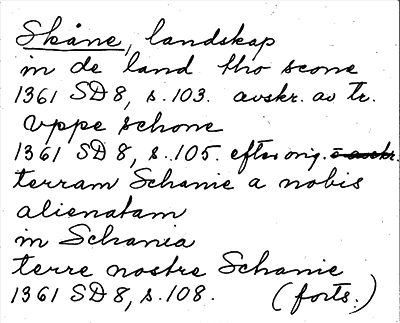 Skåne, landskap
in de land tho scone
1361 SD 8, s. 103. avskr. av tr.
vppe schone
1361 SD 8, s. 105. efter orig. o avskr.
terram Schanie a nobis
alienatam
in Schania
terre nostre Schanie
1361 SD 8, s. 108. (forts.)